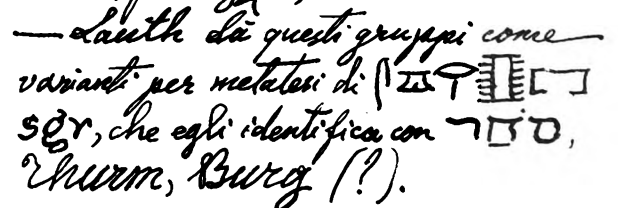 — Lauth dà questi gruppi come —
varianti per metatesi di
sgr, che egli identifica con
Thurm, Burg (?).